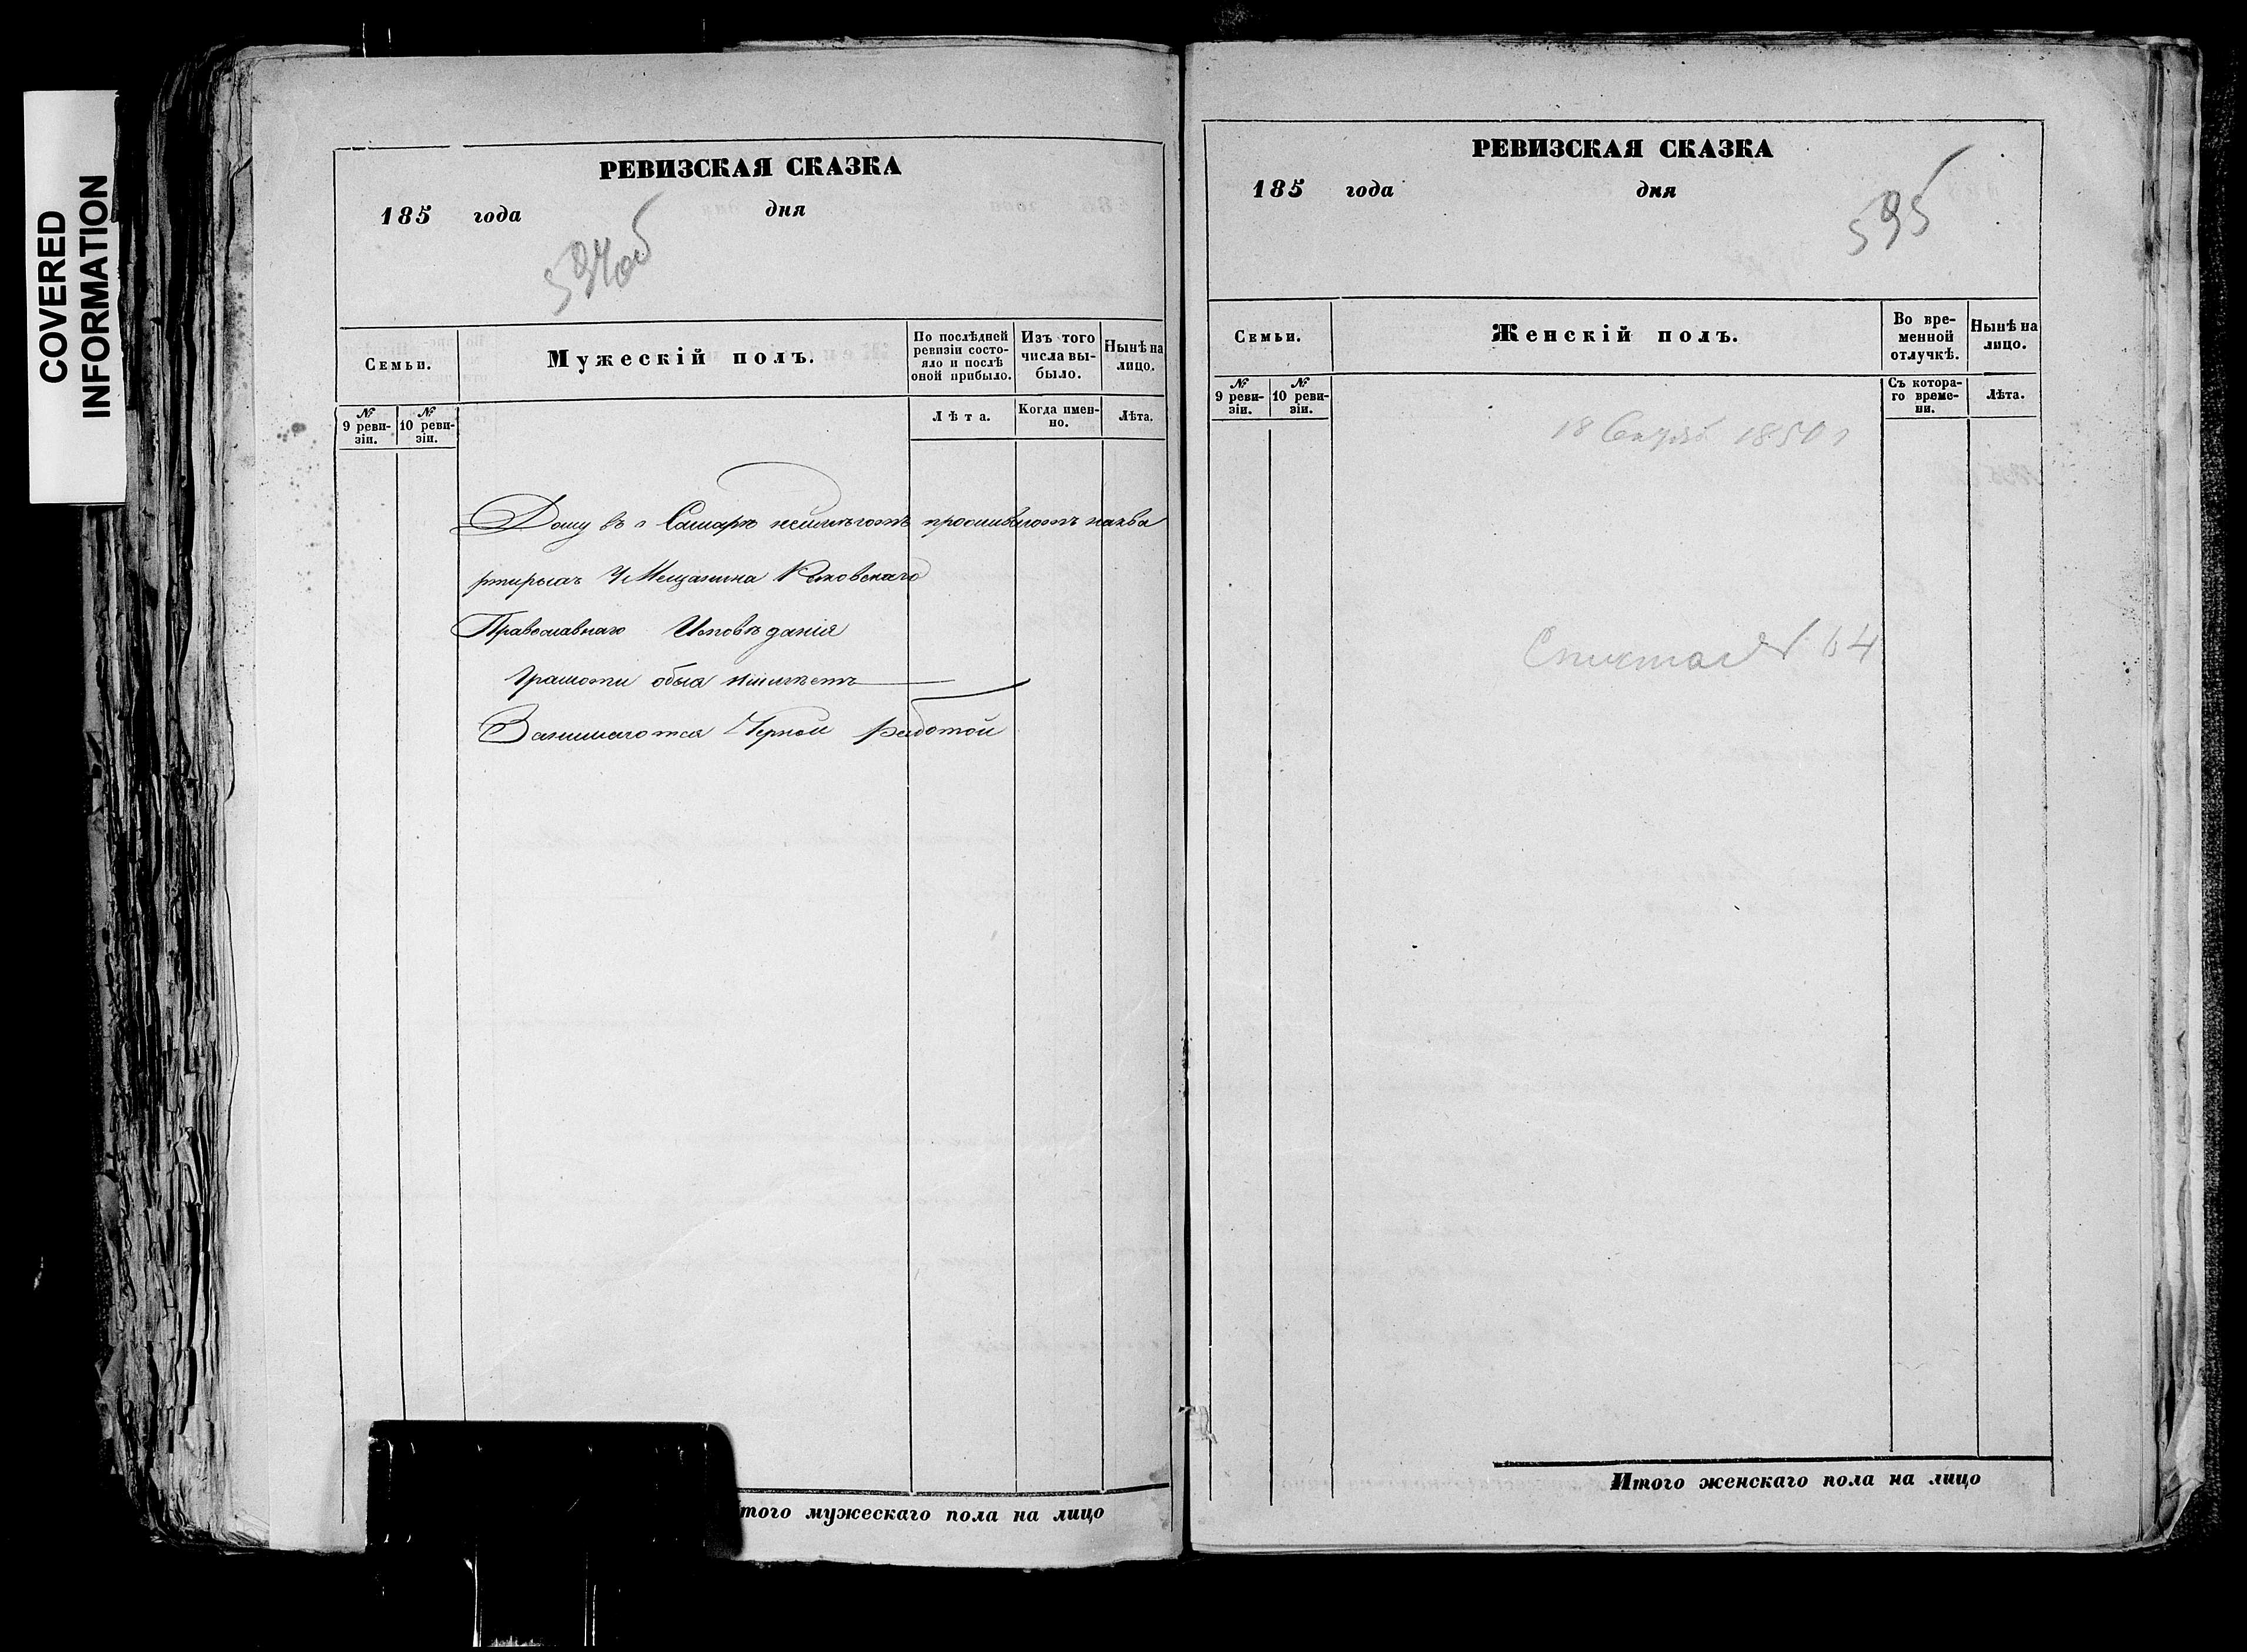 COVERED
INFORMATION
РЕВИЗСКАЯ СКАЗКА
185 года дня
594об
Семьи.
Мужескій полъ.
По послѣдней
ревизіи состо-
яло и послѣ
оной прибыло.
Изъ того
числа вы-
было.
Нынѣ на
лицо.
№
9 реви-
зіи.
№
10 реви-
зіи.
Лѣта.
Когда имен-
но.
Лѣта.
Дому въ г Самаре неимеютъ проживаютъ наква
ртирыхъ У Мещанина
Православнаго Исповѣданія
Грамоти обыя
Занимаются Черной работой
того мужескаго пола на лицо
РЕВИЗСКАЯ СКАЗКА
185 года дня
595
Семьи.
Женскій полъ.
Во вре-
менной
отлучкѣ.
Нынѣ на
лицо.
№
9 реви-
зіи.
№
10 реви-
зіи.
Съ котора-
го време-
ни.
Лѣта.
18 1850 г
64
Итого женскаго пола на лицо